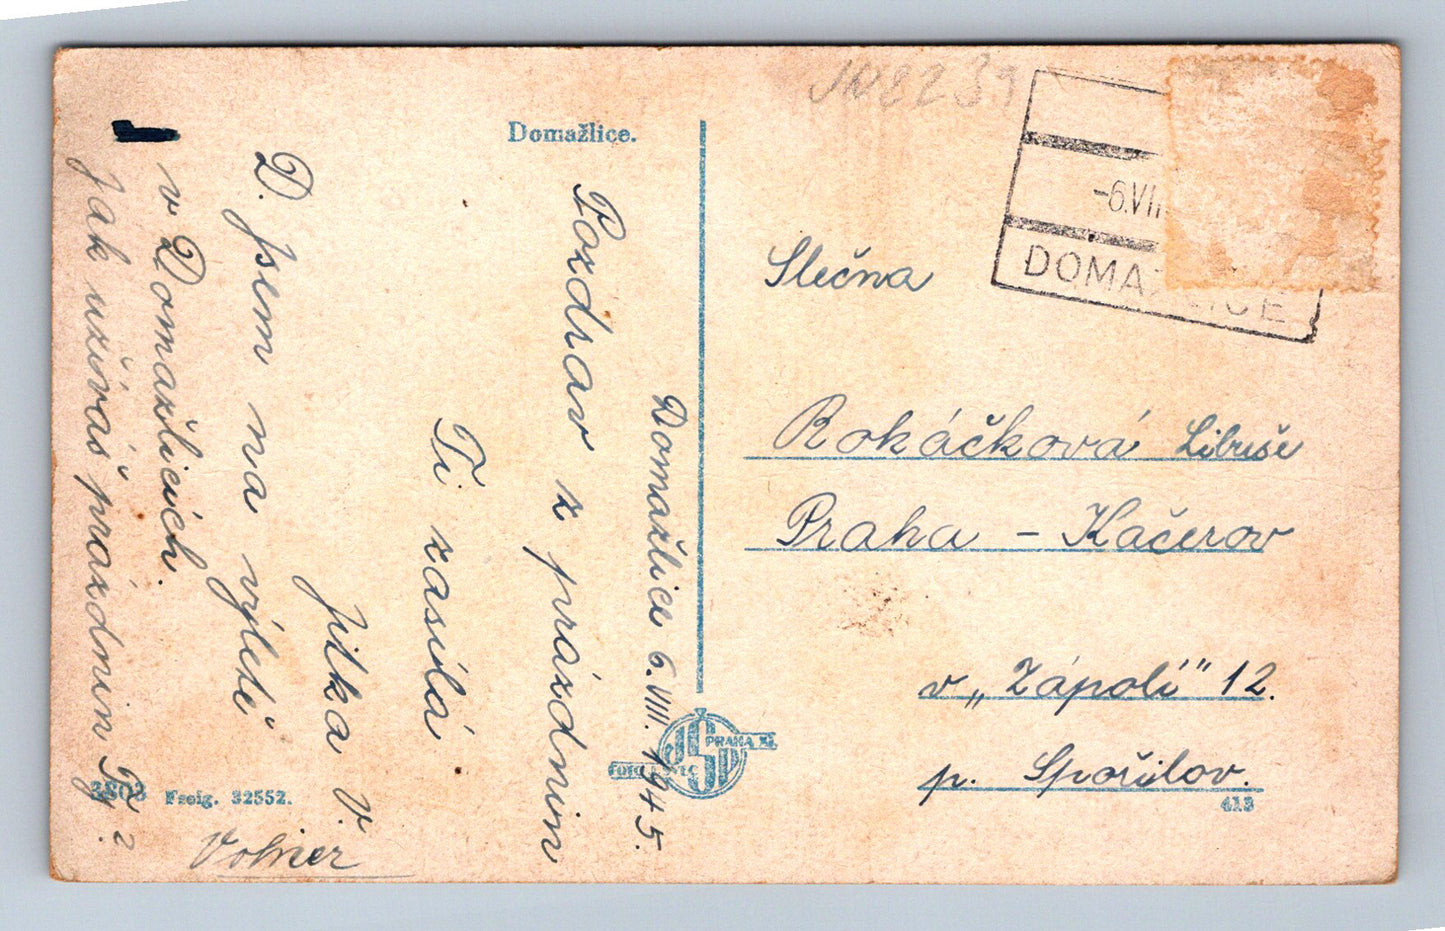 Domažlice.
Domažlice 6. VIII. 1945.
Pozdrav z prázdnin
Ti zasílá
Jitka V.
D. jsem na výletě
v Domažlicích.
Jak užíváš prázdnin Ty?
3803 Freig. 32552.
JSP
PRAHA XI.
-6.VII
DOMAŽLICE
Slečna
Rokáčková Libuše
Praha - Kačerov
v „Zápolí" 12.
p. Spořilov.
413